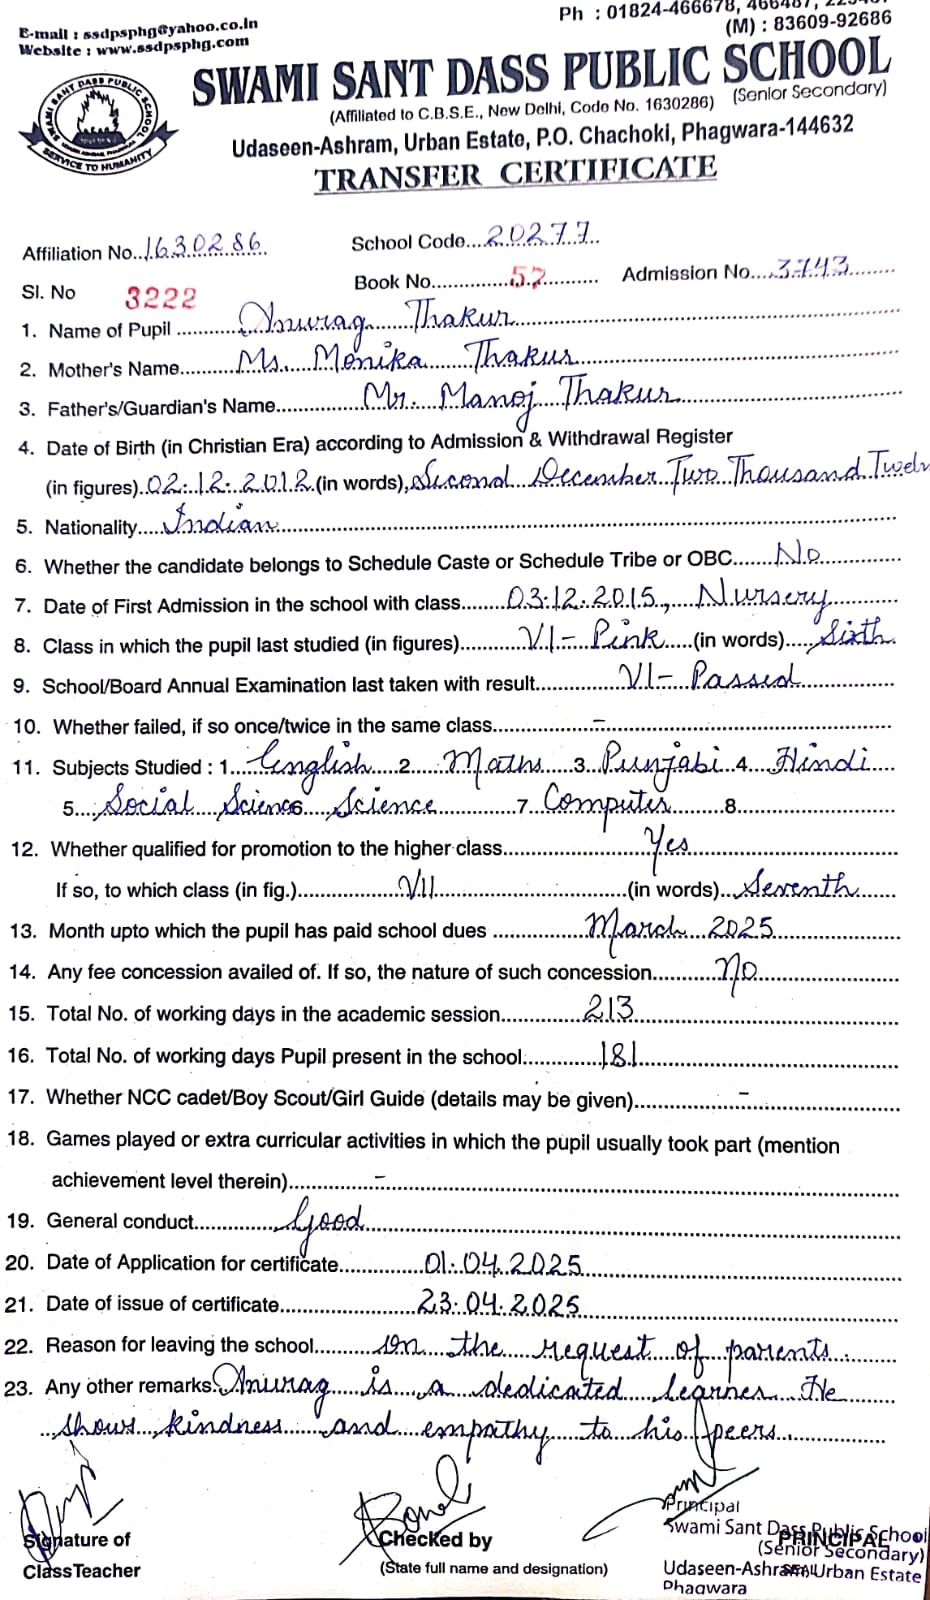 E-mail : ssdpsphg@yahoo.co.in
Website : www.ssdpsphg.com
Ph : 01824-466678, 466487,
(M) : 83609-92686
SWAMI SANT DASS PUBLIC SCHOOL
(Affiliated to C.B.S.E., New Delhi, Code No. 1630286) (Senior Secondary)
Udaseen-Ashram, Urban Estate, P.O. Chachoki, Phagwara-144632
TRANSFER CERTIFICATE
SWAMI SANT DASS PUBLIC SCHOOL
SERVICE TO HUMANITY
Affiliation No. 1630286 School Code 20277
Sl. No 3222 Book No. 57 Admission No. 3743
1. Name of Pupil Anurag Thakur
2. Mother's Name Ms. Monika Thakur
3. Father's/Guardian's Name Mr. Manoj Thakur
4. Date of Birth (in Christian Era) according to Admission & Withdrawal Register
(in figures) 02.12.2012 (in words) Second December Two Thousand Twelv
5. Nationality Indian
6. Whether the candidate belongs to Schedule Caste or Schedule Tribe or OBC No
7. Date of First Admission in the school with class 03.12.2015, Nursery
8. Class in which the pupil last studied (in figures) VI- Pink (in words) Sixth
9. School/Board Annual Examination last taken with result VI- Passed
10. Whether failed, if so once/twice in the same class -
11. Subjects Studied : 1 English 2 Maths 3 Punjabi 4 Hindi
5 Social Science 6 Science 7 Computer 8
12. Whether qualified for promotion to the higher class Yes
If so, to which class (in fig.) VII (in words) Seventh
13. Month upto which the pupil has paid school dues March 2025
14. Any fee concession availed of. If so, the nature of such concession No
15. Total No. of working days in the academic session 213
16. Total No. of working days Pupil present in the school 181
17. Whether NCC cadet/Boy Scout/Girl Guide (details may be given) -
18. Games played or extra curricular activities in which the pupil usually took part (mention
achievement level therein) -
19. General conduct Good
20. Date of Application for certificate 01.04.2025
21. Date of issue of certificate 23.04.2025
22. Reason for leaving the school On the request of parents.
23. Any other remarks Anurag is a dedicated learner. He
shows kindness and empathy to his peers.
Signature of
Class Teacher
Checked by
(State full name and designation)
Principal
Swami Sant Dass Public School
(Senior Secondary)
Udaseen-Ashram, Urban Estate
Phagwara
PRINCIPAL
SEAL